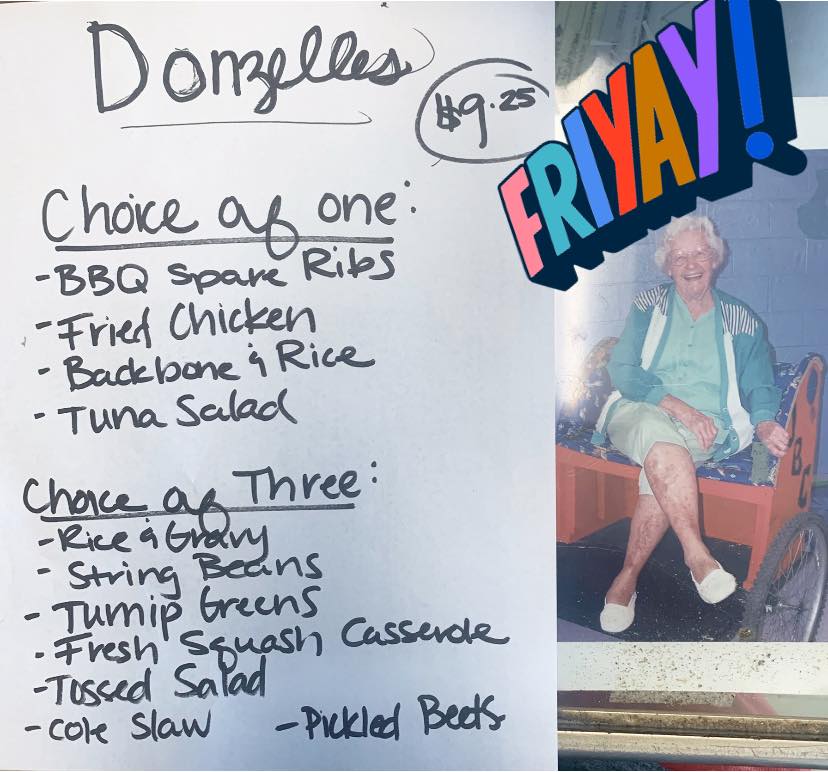 Donzelles
$9.25
FRIYAY!
Choice of one:
- BBQ Spare Ribs
- Fried Chicken
- Backbone & Rice
- Tuna Salad
Choice of Three:
- Rice & Gravy
- String Beans
- Turnip Greens
- Fresh Squash Casserole
- Tossed Salad
- Cole Slaw - Pickled Beets
BC